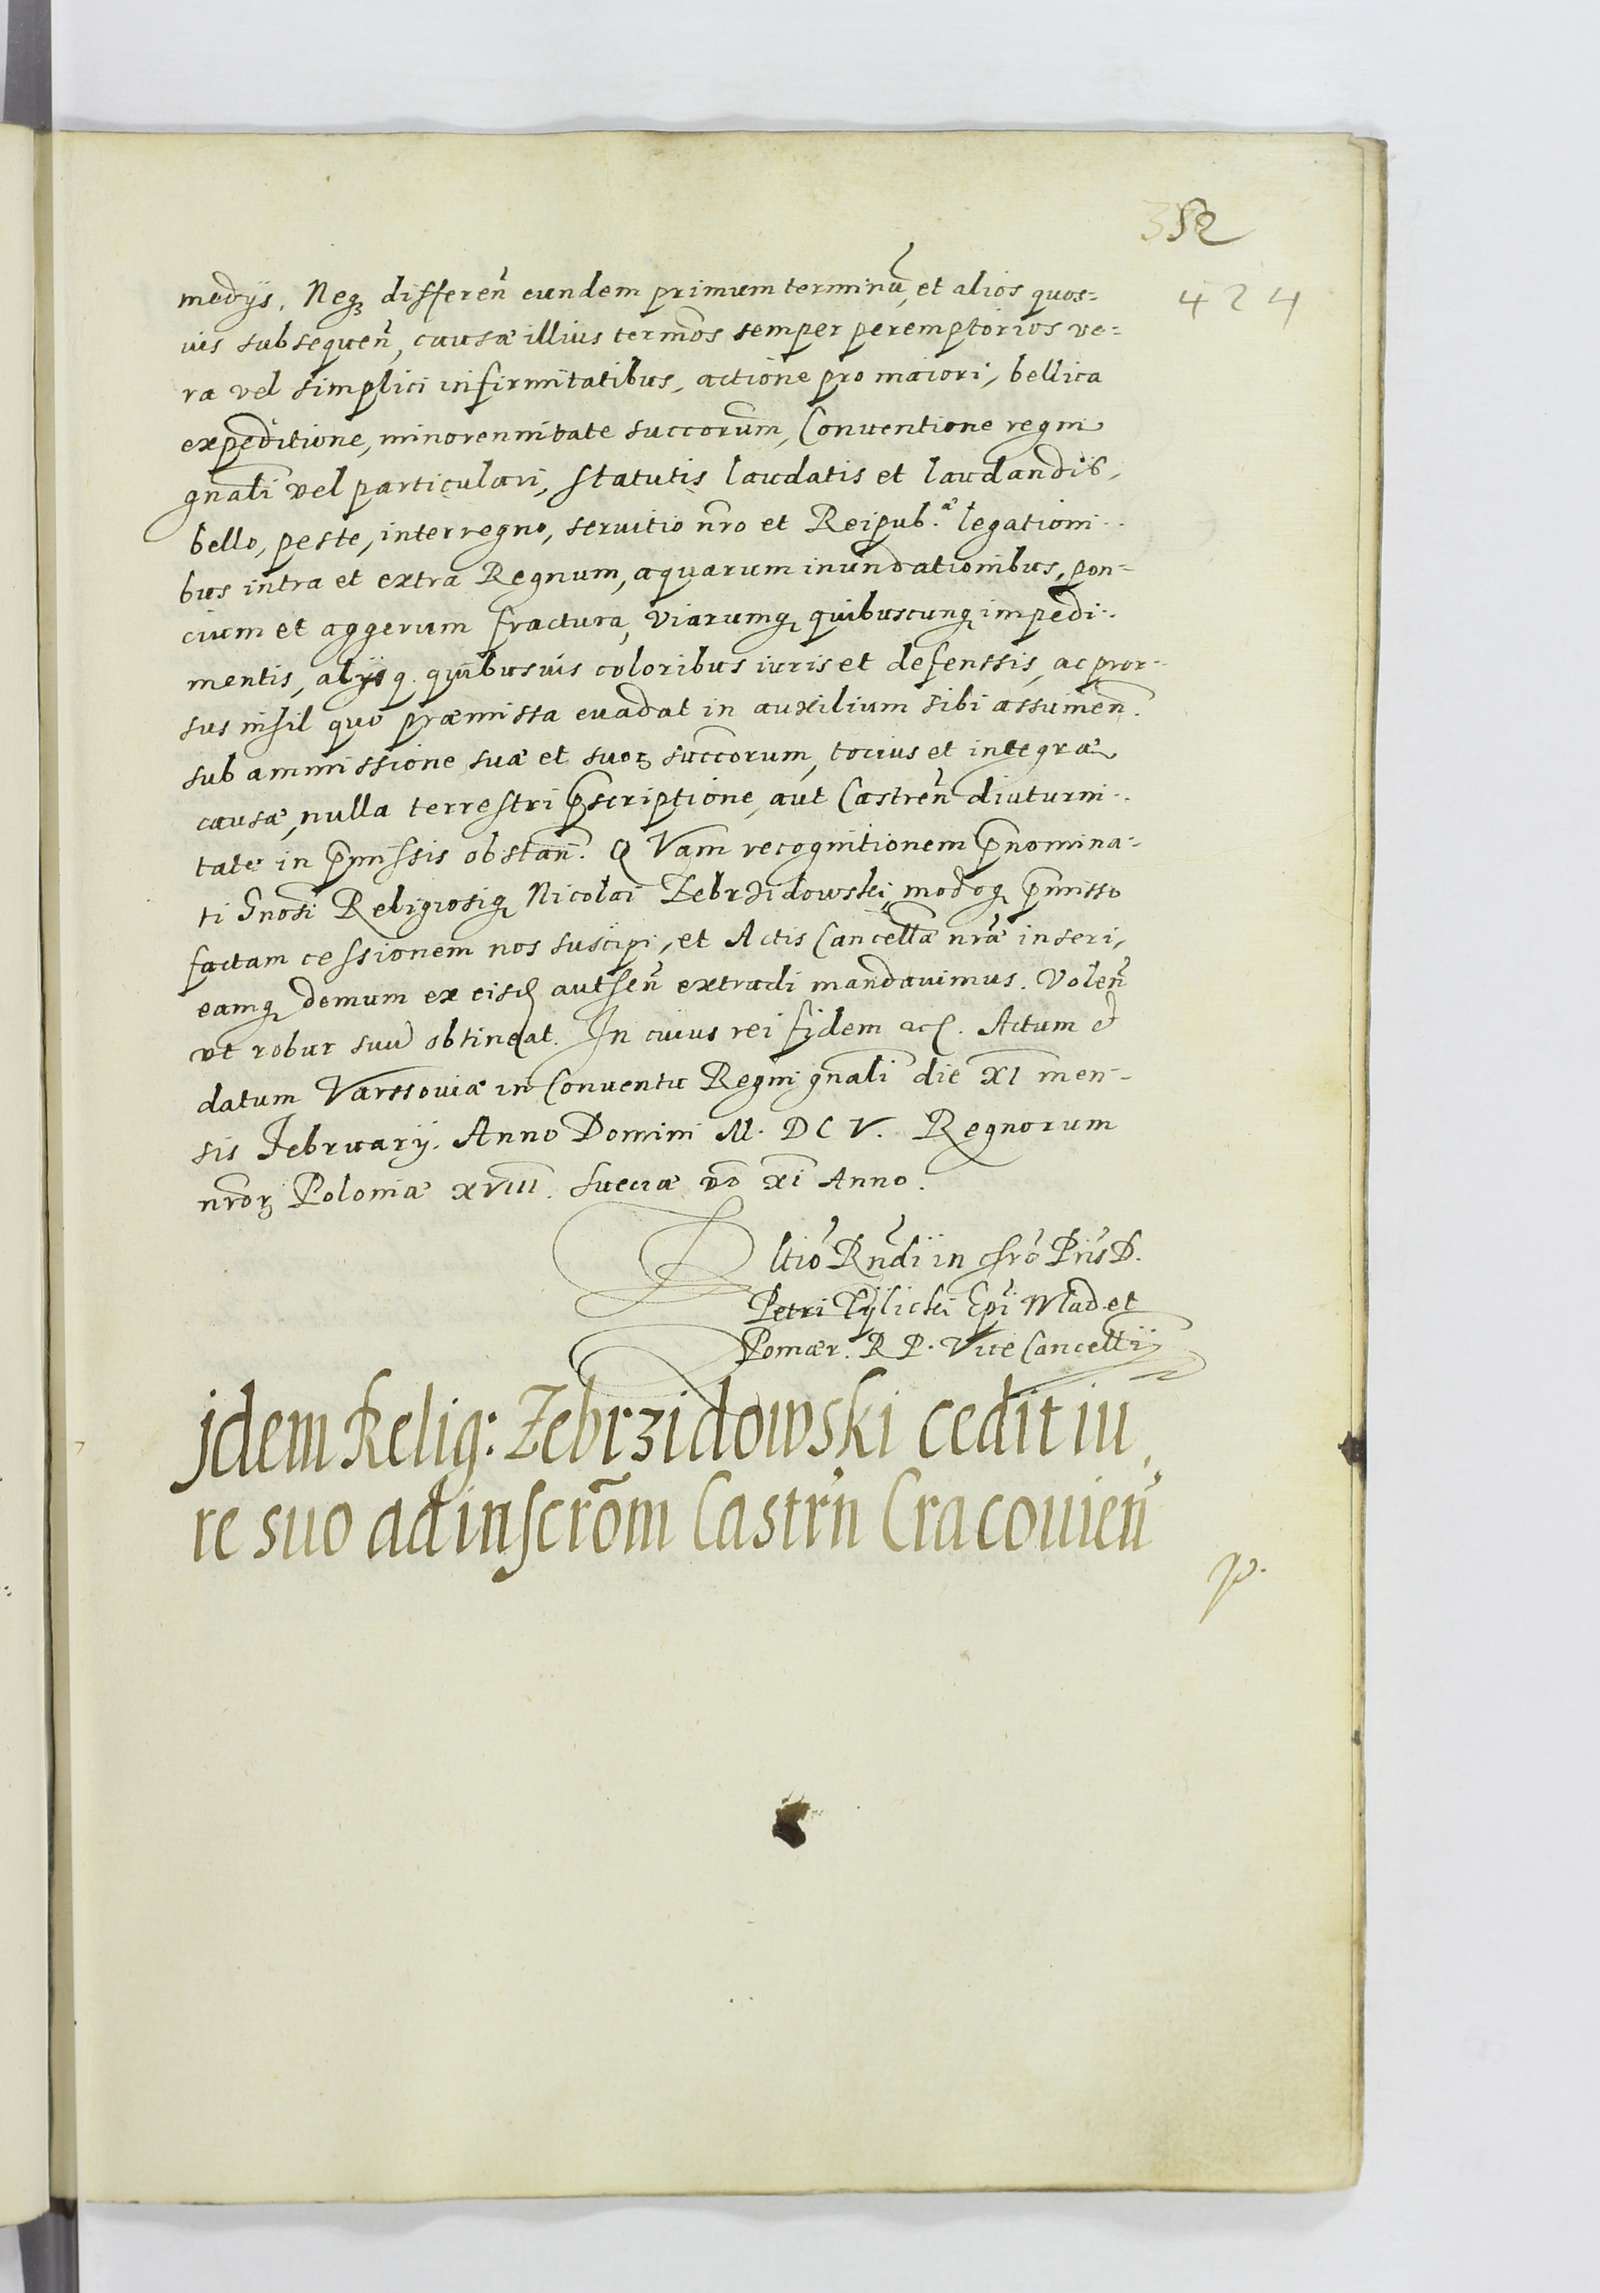 352
424
medijs. Neq₃ differeñ eundem primum terminũ, et alios quos=
uis subsequeñ, causæ illius termos semper peremptorios ve=
ra vel simplici infirmitatibus, actione pro maiori, bellica
expeditione, minorennitate succorum, Conuentione regni
gnali vel particulari, statutis laudatis et laudandis,
bello, peste, interregno, seruitio nro et Reipub.ᵃ legationi-
bus intra et extra Regnum, aquarum inundationibus, pon-
cium et aggerum fractura, viarumq₃ quibuscunq₃ impedi-
mentis, alijsq. quibusuis coloribus iuris et defenssis, ac pror-
sus nihil quo præmissa euadat in auxilium sibi assumeñ.
sub ammissione suæ et suoꝝ succorum, tocius et integræ
causæ, nulla terrestri p̃scriptione, aut Castreñ diuturni-
tate in p̃missis obstañ. Q Vam recognitionem p̃nomina-
ti Gnosi Religiosiq₃ Nicolai Zebrzidowski, modoq₃ p̃misso
factam cessionem nos suscipi, et Actis Cancellæ nræ inseri,
eamq₃ demum ex eisd autheñ extradi mandauimus. Voleñ
vt robur suũ obtineat. In cuius rei fidem ac. Actum &
datum Varssouiæ in Conuentu Regni gnali die XI men-
sis February. Anno Domini M. D C V. Regnorum
nroꝝ Poloniæ XVIII. Sueciæ vo XI Anno.
Rltio Rndi in chro Pris D.
Petri Tylicki Epi Wlad. et
Pomær. R P. Vice Cancellij
Jdem Relig: Zebrzidowski cedit iu
re suo ad inscrõm Castrñ Cracouieñ
p.